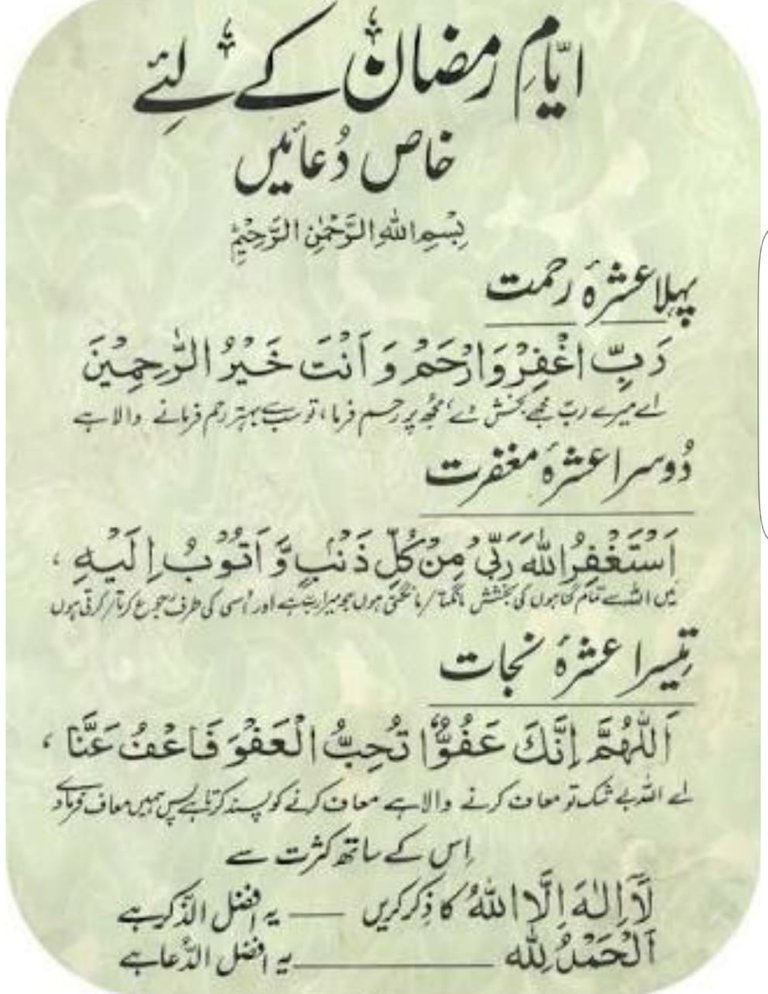 ایّامِ رمضان کے لئے
خاص دُعائیں
بِسْمِ اللهِ الرَّحْمٰنِ الرَّحِیْمِ
پہلا عشرۂ رحمت
رَبِّ اغْفِرْ وَارْحَمْ وَ اَنْتَ خَیْرُ الرّٰحِمِیْنَ
اے میرے ربّ مجھے بخش دے، مجھ پر رحم فرما، تو سب سے بہتر رحم فرمانے والا ہے
دُوسرا عشرۂ مغفرت
اَسْتَغْفِرُ اللهَ رَبِّیْ مِنْ کُلِّ ذَنْۢبٍ وَّ اَتُوْبُ اِلَیْهِ ،
میں اللہ سے تمام گناہوں کی بخشش مانگتا / مانگتی ہوں جو میرا ربّ ہے اور اُسی کی طرف رجوع کرتا / کرتی ہوں
تیسرا عشرۂ نجات
اَللّٰهُمَّ اِنَّكَ عَفُوٌّ تُحِبُّ الْعَفْوَ فَاعْفُ عَنَّا ،
اے اللہ بے شک تو معاف کرنے والا ہے معاف کرنے کو پسند کرتا ہے پس ہمیں معاف فرما دے
اِس کے ساتھ کثرت سے
لَآ اِلٰهَ اِلَّا اللهُ کا ذِکر کریں — یہ افضل الذِّکر ہے
اَلْحَمْدُ لِلّٰه — یہ افضل الدُّعا ہے